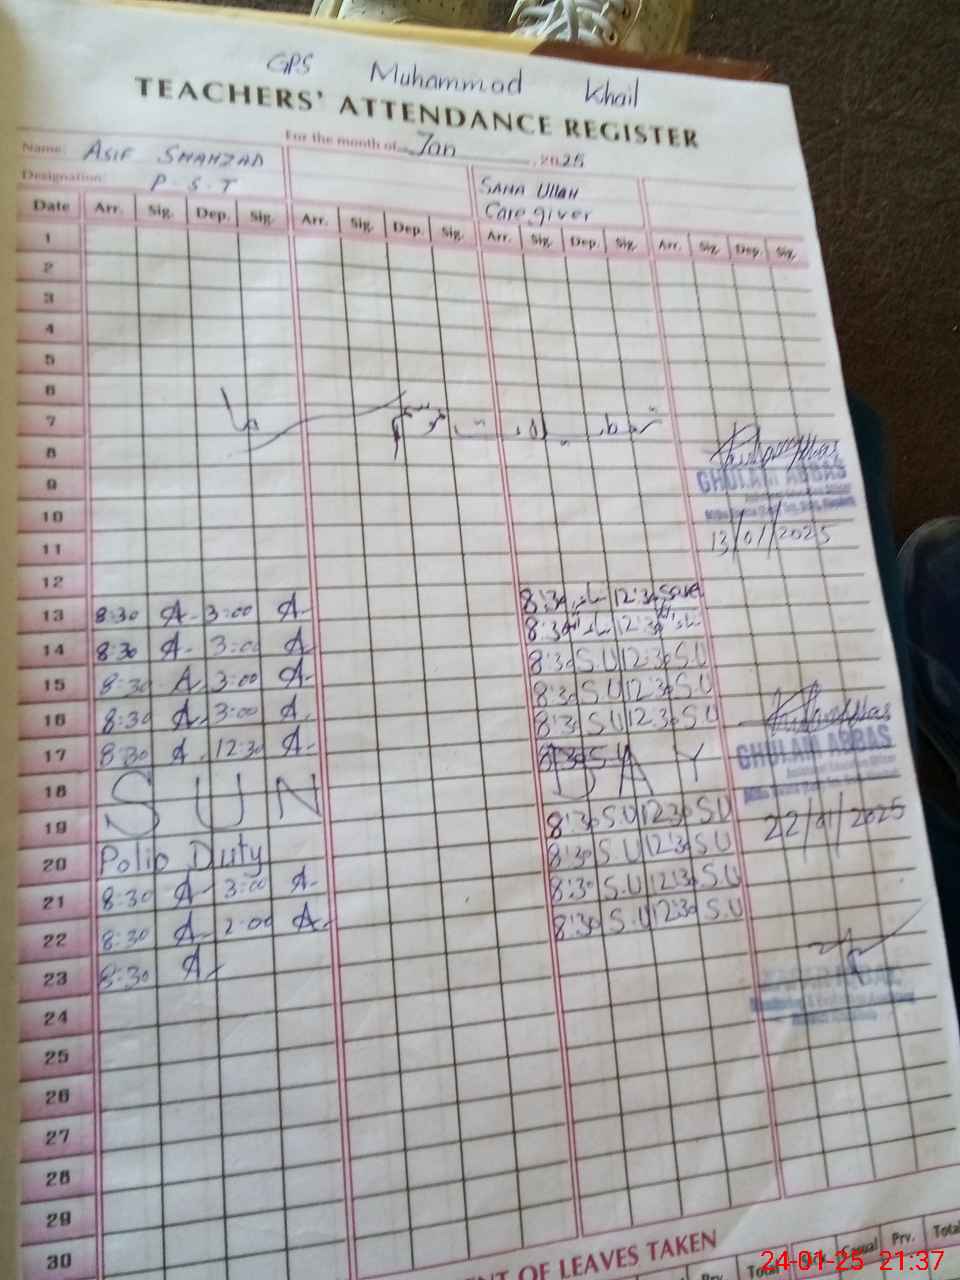 GPS Muhammad Khail
TEACHERS' ATTENDANCE REGISTER
For the month of Jan, 2025
Name: ASIF SHAHZAD
Designation: P.S.T
SANA Ullah
Care giver
Date Arr. Sig. Dep. Sig. Arr. Sig. Dep. Sig. Arr. Sig. Dep. Sig. Arr. Sig. Dep. Sig.
1
2
3
4
5
6
7
8
GHULAM ABBAS
9
10
11 13/01/2025
12
13 8:30 A 3:00 A 8:30 12:30
14 8:30 A 3:00 A 8:30 12:30
15 8:30 A 3:00 A 8:30 S.U 12:30 S.U
16 8:30 A 3:00 A 8:30 S.U 12:30 S.U
17 8:30 A 12:30 A 8:30 S.U 12:30 S.U
GHULAM ABBAS
18 S U N D A Y
19 8:30 S.U 12:30 S.U 22/01/2025
20 Polio Duty 8:30 S.U 12:30 S.U
21 8:30 A 3:00 A 8:30 S.U 12:30 S.U
22 8:30 A 2:00 A 8:30 S.U 12:30 S.U
23 8:30 A
24
25
26
27
28
29
30
NT OF LEAVES TAKEN
Prv. Total Sick Casual Prv. Total
24-01-25 21:37